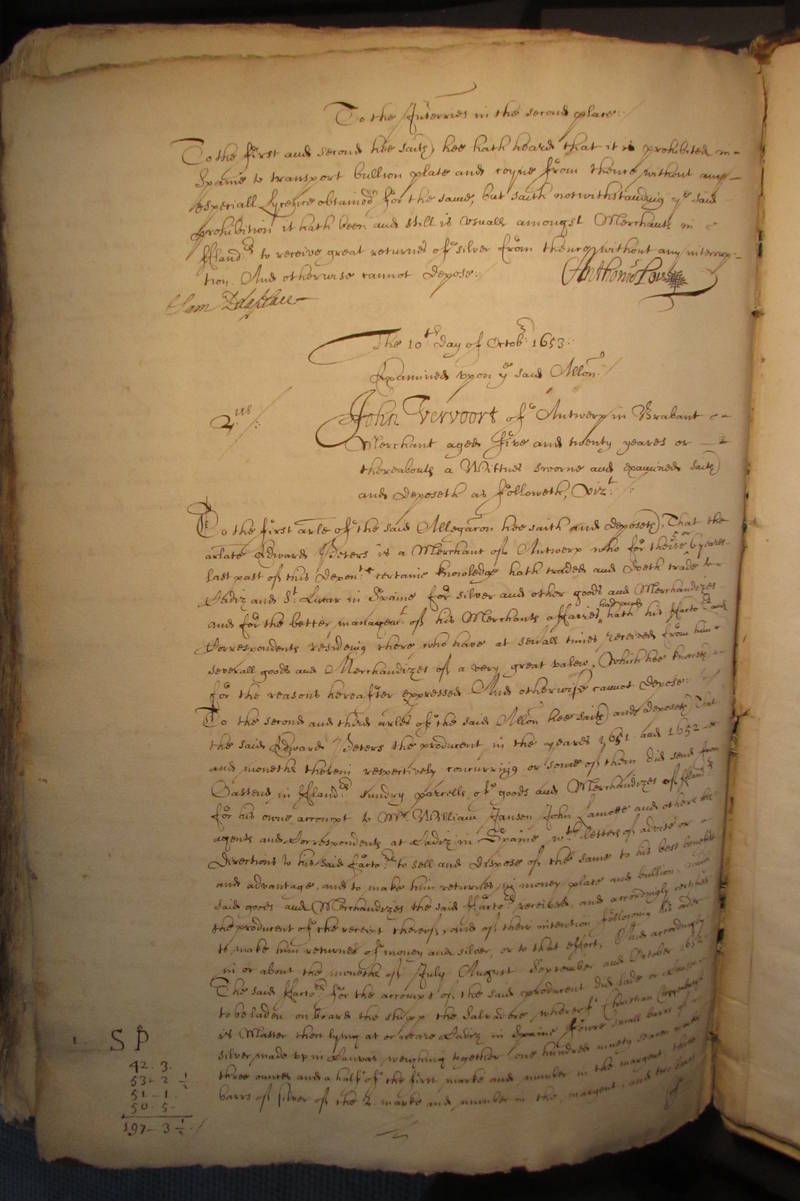 To the Interries in the second place:/
To the first and second hee saith hee hath heard that it is prohibited in
Spaine to transport bullion plate and coyne from thence without any
especiall lycence obtained for the same, but saith notwithstanding ye said
prohibition it hath been and still is usuall amongst Merchants in
Flandrs to receive great returnes of silver from thence without any interrup-
tion. And otherwise cannot depose:/
Anthonio
Sam
The 10th day of Octobr: 1653.
Examined upon ye said Allon:/
2us/:
John Vervoort of Antwerp in Brabant
Merchant aged five and twenty yeares or
thereabouts a Wittnes sworne and examined saith
and deposeth as followeth, Vizt:/
To the first arle of the said Allegacon hee saith and deposeth, That the
arlate Edward Peters is a Merchant of Antwerp who for these 6 yeares
last past of this deponts certaine knowledge hath traded and doeth trade to
Cadiz and St. Lucar in Spaine for silver and other goods and Merchandizes
and for the better managemt of his Merchants affaires hath his Factors and
Correspondents resideing there who have at severall times received from him
severall goods and Merchandizes of a very great valew, Which hee knoweth
for the reasons hereafter expressed And otherwise cannot depose:
To the second and third arles of the said Allon hee saith and deposeth That
the said Edward Peters the producent in the yeares 1651 and 1652
and moneths therein respectively concurring or some of them did send from
Oastend in Flandrs sundry parcells of goods and Merchandizes of
for his owne accompt to Mr. William Jansen John Lamott and others his
agents and Correspondents at Cadiz in Spaine wth letters of advice or
directions to his said Factors to sell and dispose of the same to his best benefitt
and advantage, and to make him returnes in money plate and bullion,
said goods and Merchandizes the said Factors received, and accordingly certified
the producent of the receipt thereof and of their intention following his order
to make him returnes of money and silver, or to that effect, And accordingly
in or about the moneths of July August September and October 1652
The said Factors for the accompt of the said producent did lade or cause
to be laden on board the shipp the Salvador, whereof Christian Cloppenburg
is Master then lying at or neare Cadiz in Spaine foure small barrs of
silver made up in Canvas, weighing together one hundred ninety seaven markes
three ounces and a halfe of the first marke and number in the margent, three
barrs of silver of the 2. marke and number in the margent, and two barrs
of
1. SP
42 . 3.
53 - 2 ½
51 - 1.
50 . 5.
197 - 3 ½ /